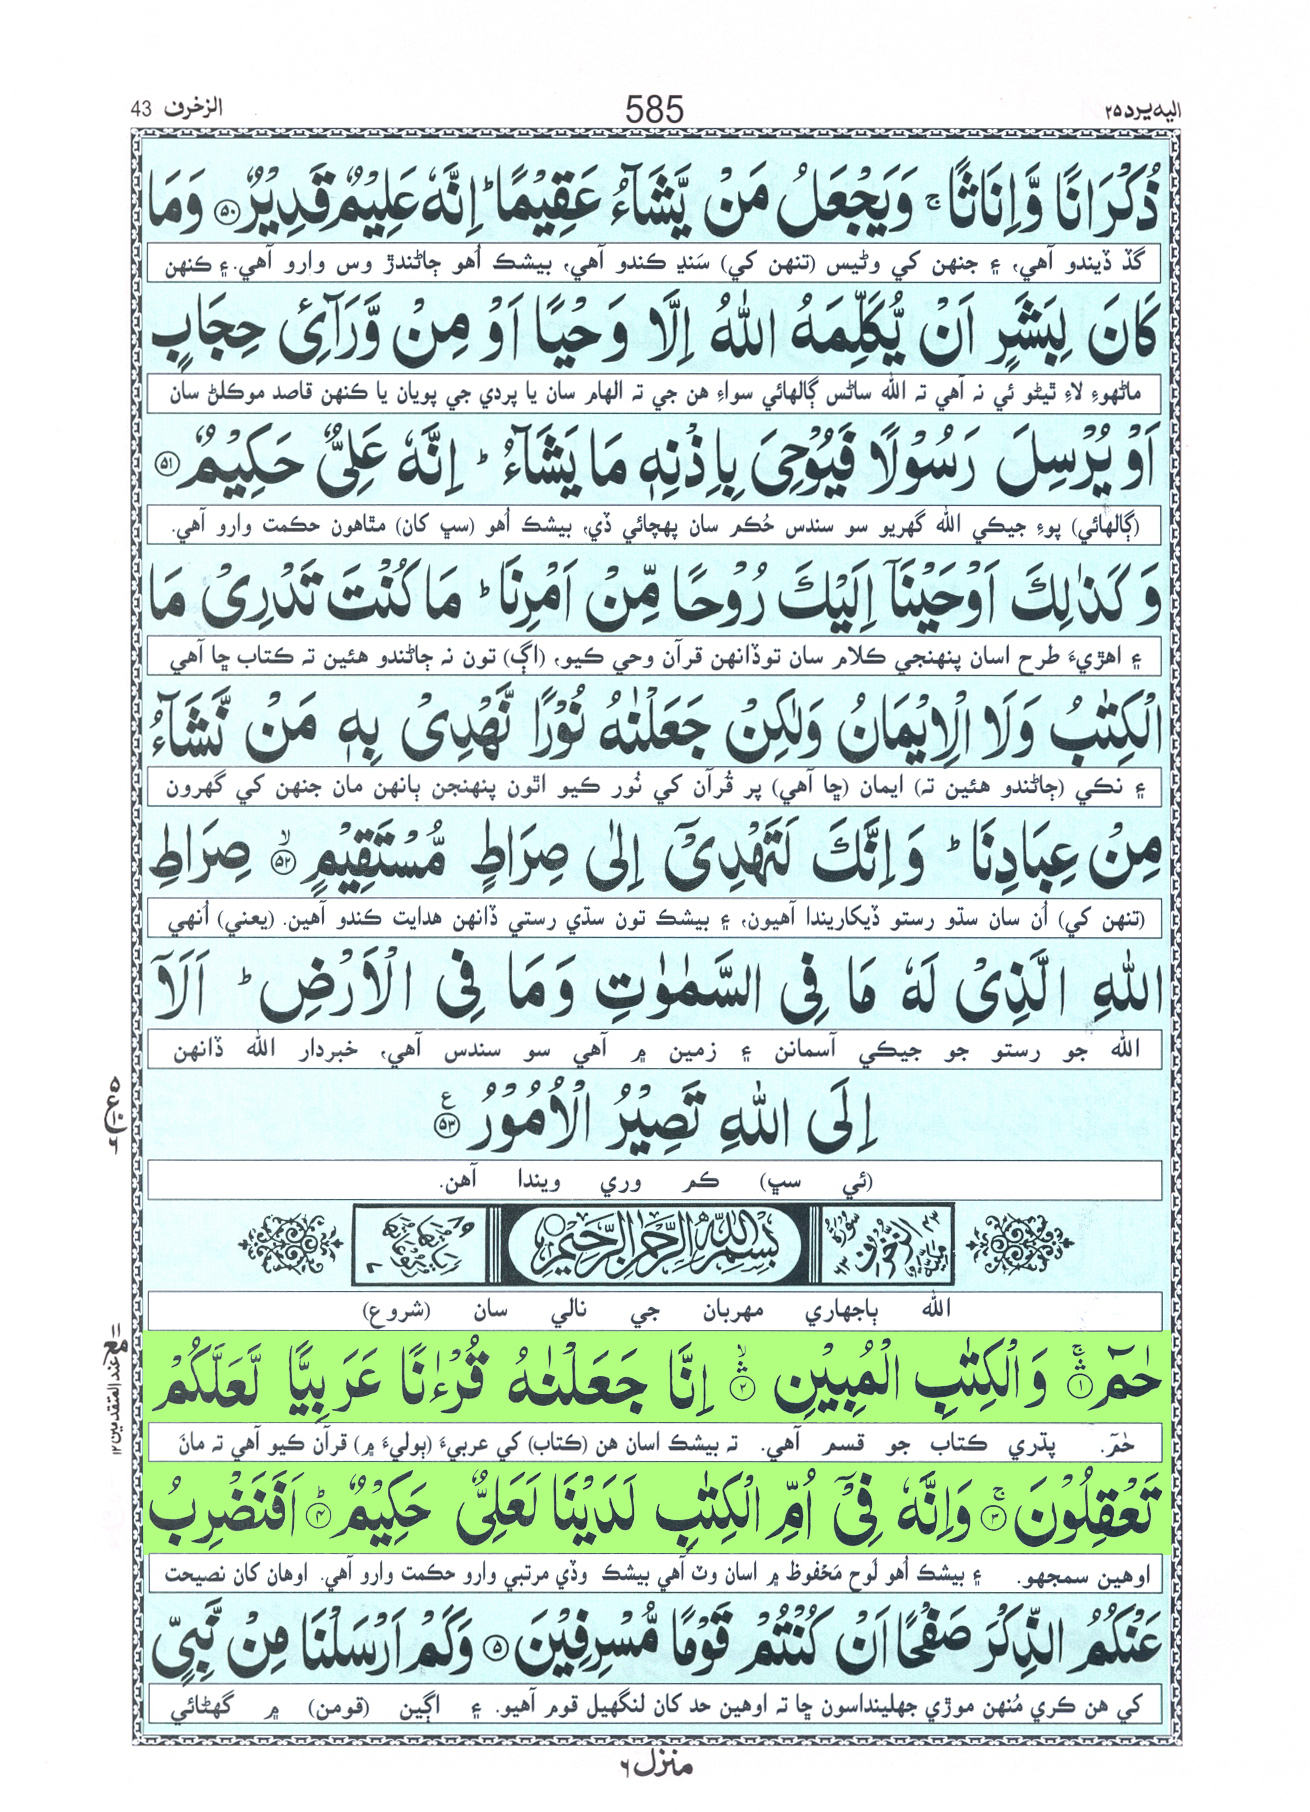 اليه يرد ۲۵ 585 الزخرف 43
ذُكْرَانًا وَّاِنَاثًا ۚ وَيَجْعَلُ مَنْ يَّشَآءُ عَقِيْمًا ؕ اِنَّهٗ عَلِيْمٌ قَدِيْرٌ ۵۰ وَمَا
گڏ ڏيندو آهي، ۽ جنهن کي وڻيس (تنهن کي) سَنڍ ڪندو آهي، بيشڪ اُهو ڄاڻندڙ وس وارو آهي. ۽ ڪنهن
كَانَ لِبَشَرٍ اَنْ يُّكَلِّمَهُ اللّٰهُ اِلَّا وَحْيًا اَوْ مِنْ وَّرَآئِ حِجَابٍ
ماڻهوءَ لاءِ ٿيڻو ئي نہ آهي تہ الله ساڻس ڳالهائي سواءِ هن جي تہ الهام سان يا پردي جي پويان يا ڪنهن قاصد موڪلڻ سان
اَوْ يُرْسِلَ رَسُوْلًا فَيُوْحِيَ بِاِذْنِهٖ مَا يَشَآءُ ؕ اِنَّهٗ عَلِيٌّ حَكِيْمٌ ۵۱
(ڳالهائي) پوءِ جيڪي الله گهريو سو سندس حُڪم سان پهچائي ڏي، بيشڪ اُهو (سڀ کان) مٿاهون حڪمت وارو آهي.
وَكَذٰلِكَ اَوْحَيْنَآ اِلَيْكَ رُوْحًا مِّنْ اَمْرِنَا ؕ مَا كُنْتَ تَدْرِيْ مَا
۽ اهڙيءَ طرح اسان پنهنجي ڪلام سان توڏانهن قرآن وحي ڪيو، (اڳ) تون نہ ڄاڻندو هئين تہ ڪتاب ڇا آهي
الْكِتٰبُ وَلَا الْاِيْمَانُ وَلٰكِنْ جَعَلْنٰهُ نُوْرًا نَّهْدِيْ بِهٖ مَنْ نَّشَآءُ
۽ نڪي (ڄاڻندو هئين تہ) ايمان (ڇا آهي) پر قُرآن کي نُور ڪيو اٿون پنهنجن ٻانهن مان جنهن کي گهرون
مِنْ عِبَادِنَا ؕ وَاِنَّكَ لَتَهْدِيْٓ اِلٰى صِرَاطٍ مُّسْتَقِيْمٍ ۙ ۵۲ صِرَاطِ
(تنهن کي) اُن سان سڌو رستو ڏيکاريندا آهيون، ۽ بيشڪ تون سڌي رستي ڏانهن هدايت ڪندو آهين. (يعني) اُنهي
اللّٰهِ الَّذِيْ لَهٗ مَا فِي السَّمٰوٰتِ وَمَا فِي الْاَرْضِ ؕ اَلَآ
الله جو رستو جو جيڪي آسمانن ۽ زمين ۾ آهي سو سندس آهي، خبردار الله ڏانهن
اِلَى اللّٰهِ تَصِيْرُ الْاُمُوْرُ ۵۳ ع
(ئي سڀ) ڪم وري ويندا آهن.
بِسْمِ اللّٰهِ الرَّحْمٰنِ الرَّحِيْمِ
الله ٻاجهاري مهربان جي نالي سان (شروع)
حٰمٓ ۚ ۱ وَالْكِتٰبِ الْمُبِيْنِ ۙ ۲ اِنَّا جَعَلْنٰهُ قُرْءٰنًا عَرَبِيًّا لَّعَلَّكُمْ
حٰمٓ. پڌري ڪتاب جو قسم آهي. تہ بيشڪ اسان هن (ڪتاب) کي عربيءَ (ٻوليءَ ۾) قرآن ڪيو آهي تہ مانَ
تَعْقِلُوْنَ ۚ ۳ وَاِنَّهٗ فِيْٓ اُمِّ الْكِتٰبِ لَدَيْنَا لَعَلِيٌّ حَكِيْمٌ ؕ ۴ اَفَنَضْرِبُ
اوهين سمجهو. ۽ بيشڪ اُهو لَوح مَحْفوظ ۾ اسان وٽ آهي بيشڪ وڏي مرتبي وارو حڪمت وارو آهي. اوهان کان نصيحت
عَنْكُمُ الذِّكْرَ صَفْحًا اَنْ كُنْتُمْ قَوْمًا مُّسْرِفِيْنَ ۵ وَكَمْ اَرْسَلْنَا مِنْ نَّبِيٍّ
کي هن ڪري مُنهن موڙي جهلينداسون ڇا تہ اوهين حد کان لنگهيل قوم آهيو. ۽ اڳين (قومن) ۾ گهڻائي
منزل ۶